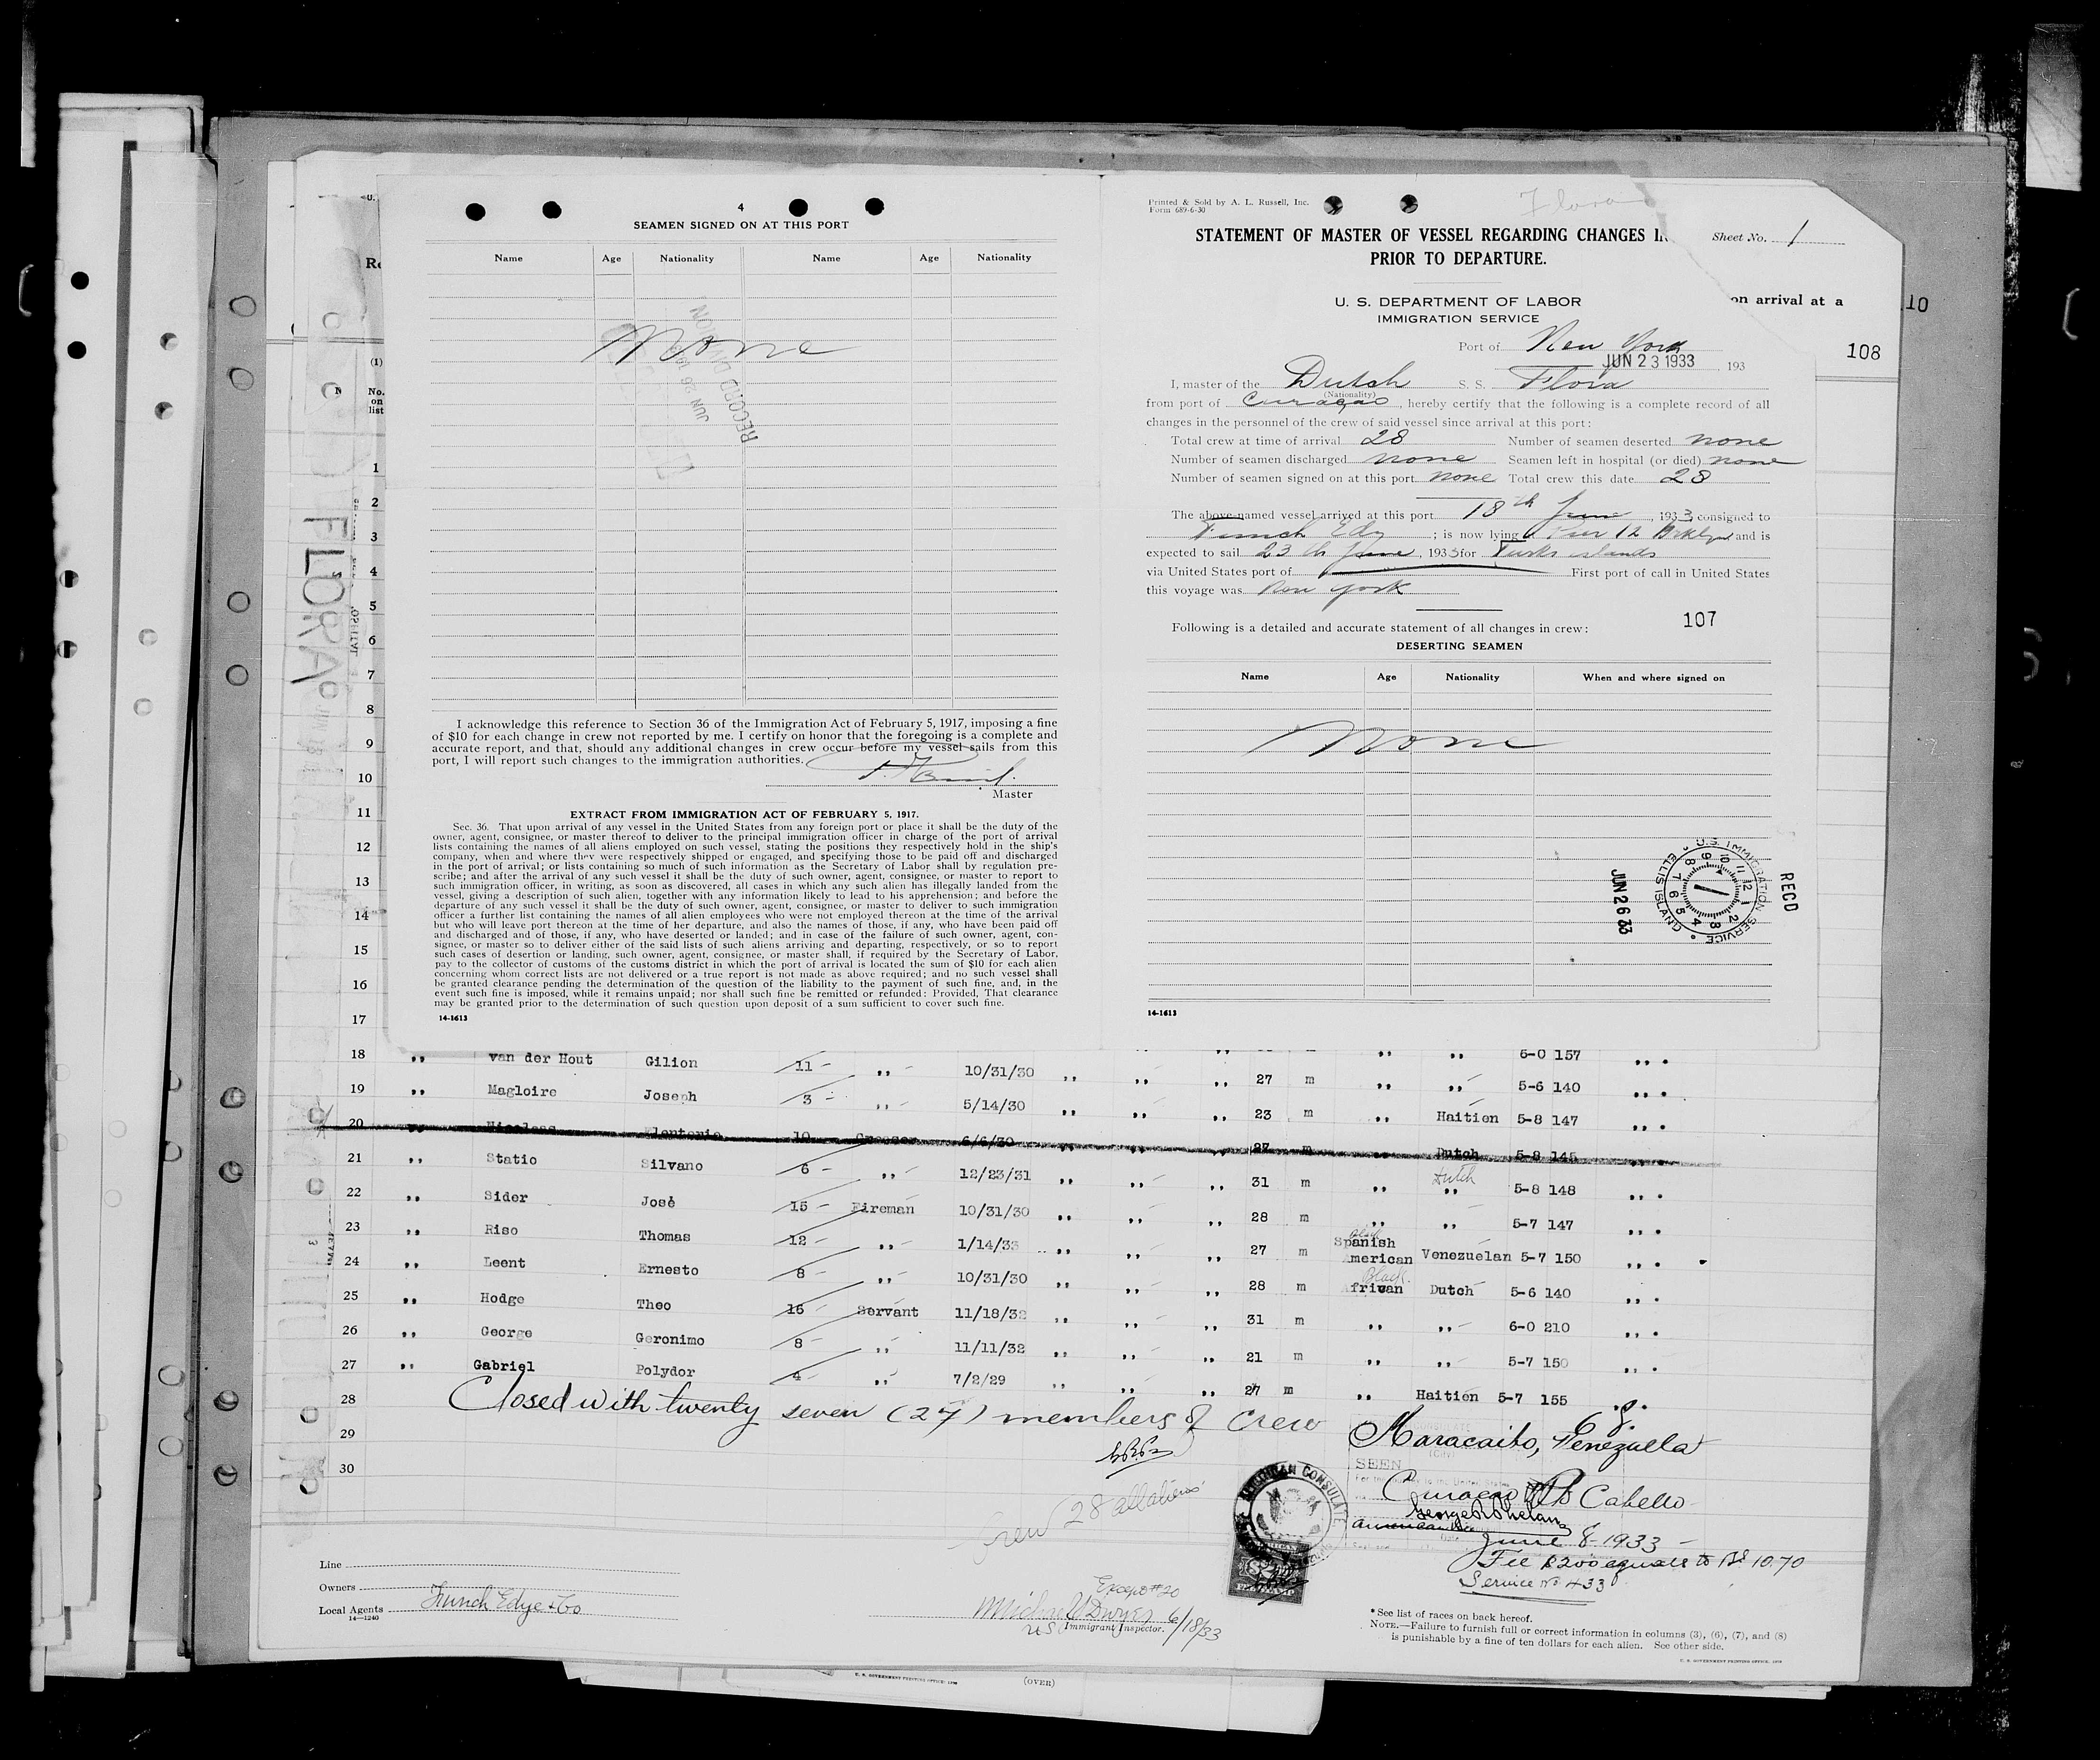 4
SEAMEN SIGNED ON AT THIS PORT
Name Age Nationality Name Age Nationality
None
RECORD DIVISION
JUN 26 1933
I acknowledge this reference to Section 36 of the Immigration Act of February 5, 1917, imposing a fine
of $10 for each change in crew not reported by me. I certify on honor that the foregoing is a complete and
accurate report, and that, should any additional changes in crew occur before my vessel sails from this
port, I will report such changes to the immigration authorities.
Master
EXTRACT FROM IMMIGRATION ACT OF FEBRUARY 5, 1917.
Sec. 36. That upon arrival of any vessel in the United States from any foreign port or place it shall be the duty of the
owner, agent, consignee, or master thereof to deliver to the principal immigration officer in charge of the port of arrival
lists containing the names of all aliens employed on such vessel, stating the positions they respectively hold in the ship's
company, when and where they were respectively shipped or engaged, and specifying those to be paid off and discharged
in the port of arrival; or lists containing so much of such information as the Secretary of Labor shall by regulation pre-
scribe; and after the arrival of any such vessel it shall be the duty of such owner, agent, consignee, or master to report to
such immigration officer, in writing, as soon as discovered, all cases in which any such alien has illegally landed from the
vessel, giving a description of such alien, together with any information likely to lead to his apprehension; and before the
departure of any such vessel it shall be the duty of such owner, agent, consignee, or master to deliver to such immigration
officer a further list containing the names of all alien employees who were not employed thereon at the time of the arrival
but who will leave port thereon at the time of her departure, and also the names of those, if any, who have been paid off
and discharged and of those, if any, who have deserted or landed; and in case of the failure of such owner, agent, con-
signee, or master so to deliver either of the said lists of such aliens arriving and departing, respectively, or so to report
such cases of desertion or landing, such owner, agent, consignee, or master shall, if required by the Secretary of Labor,
pay to the collector of customs of the customs district in which the port of arrival is located the sum of $10 for each alien
concerning whom correct lists are not delivered or a true report is not made as above required; and no such vessel shall
be granted clearance pending the determination of the question of the liability to the payment of such fine, and, in the
event such fine is imposed, while it remains unpaid; nor shall such fine be remitted or refunded: Provided, That clearance
may be granted prior to the determination of such question upon deposit of a sum sufficient to cover such fine.
14-1613
Printed & Sold by A. L. Russell, Inc.
Form 689-6-30
Flora
STATEMENT OF MASTER OF VESSEL REGARDING CHANGES IN
PRIOR TO DEPARTURE.
Sheet No. 1
U. S. DEPARTMENT OF LABOR
IMMIGRATION SERVICE
on arrival at a
10
108
Port of New York
JUN 23 1933, 193
I, master of the Dutch S. S. Flora
(Nationality)
from port of Curaçao, hereby certify that the following is a complete record of all
changes in the personnel of the crew of said vessel since arrival at this port:
Total crew at time of arrival 28 Number of seamen deserted none
Number of seamen discharged none Seamen left in hospital (or died) none
Number of seamen signed on at this port none Total crew this date 28
The above-named vessel arrived at this port 18th June, 1933 consigned to
Funch Edy; is now lying Pier 12 Brklyn and is
expected to sail 23th June, 1933 for Turks islands
via United States port of First port of call in United States
this voyage was New York
107
Following is a detailed and accurate statement of all changes in crew:
DESERTING SEAMEN
Name Age Nationality When and where signed on
None
U.S. IMMIGRATION SERVICE ELLIS ISLAND
RECD
JUN 26 33
14-1613
FLORA
(1)
No.
on
list
1
2
3
4
5
6
7
8
9
10
11
12
13
14
15
16
17
18 ,, van der Hout Gilion 11 ,, 10/31/30 ,, ,, ,, 27 m ,, ,, 6-0 157 ,, .
19 ,, Magloire Joseph 3 ,, 5/14/30 ,, ,, ,, 23 m ,, ,, 5-6 140 ,, .
20 ,, 10 Greaser 6/6/30 ,, ,, ,, 27 m ,, Haitien 5-8 147 ,, .
21 ,, Statio Silvano 6 ,, 12/23/31 ,, ,, ,, 31 m ,, Dutch 5-8 145 ,, .
22 ,, Sider José 15 Fireman 10/31/30 ,, ,, ,, 28 m ,, Dutch ,, 5-8 148 ,, .
23 ,, Riso Thomas 12 ,, 1/14/33 ,, ,, ,, 27 m ,, ,, 5-7 147 ,, .
24 ,, Leent Ernesto 8 ,, 10/31/30 ,, ,, ,, 28 m Spanish American Venezuelan 5-7 150 ,, .
25 ,, Hodge Theo 16 Servant 11/18/32 ,, ,, ,, 31 m Black African Dutch 5-6 140 ,, .
26 ,, George Geronimo 8 ,, 11/11/32 ,, ,, ,, 21 m ,, ,, 6-0 210 ,, .
27 ,, Gabriel Polydor 4 ,, 7/2/29 ,, ,, ,, 27 m ,, ,, 5-7 150 ,, .
,, Haitien 5-7 155 ,, .
28 Closed with twenty seven (27) members of crew
29
30
Maracaibo, Venezuela
SEEN
Curacao Cabello
George R Phelan
June 8 1933
Fee $2.00 equals to Bs 10.70
Service No 433
AMERICAN CONSULATE
Crew 28 all aliens
Line
Owners
Local Agents Funch Edye & Co
14-1240
Except #20
Michael Dwyer 6/18/33
US Immigrant Inspector.
* See list of races on back hereof.
NOTE.—Failure to furnish full or correct information in columns (3), (6), (7), and (8)
is punishable by a fine of ten dollars for each alien. See other side.
U. S. GOVERNMENT PRINTING OFFICE
(OVER)